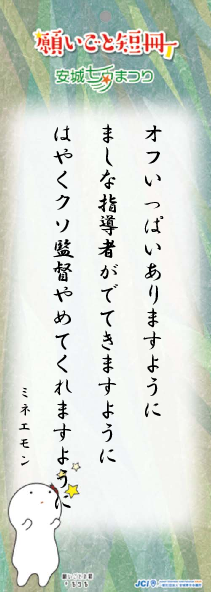 願いごと短冊
安城七夕まつり
オフいっぱいありますように
ましな指導者がでてきますように
はやくクソ監督やめてくれますように
ミネエモン
JCI